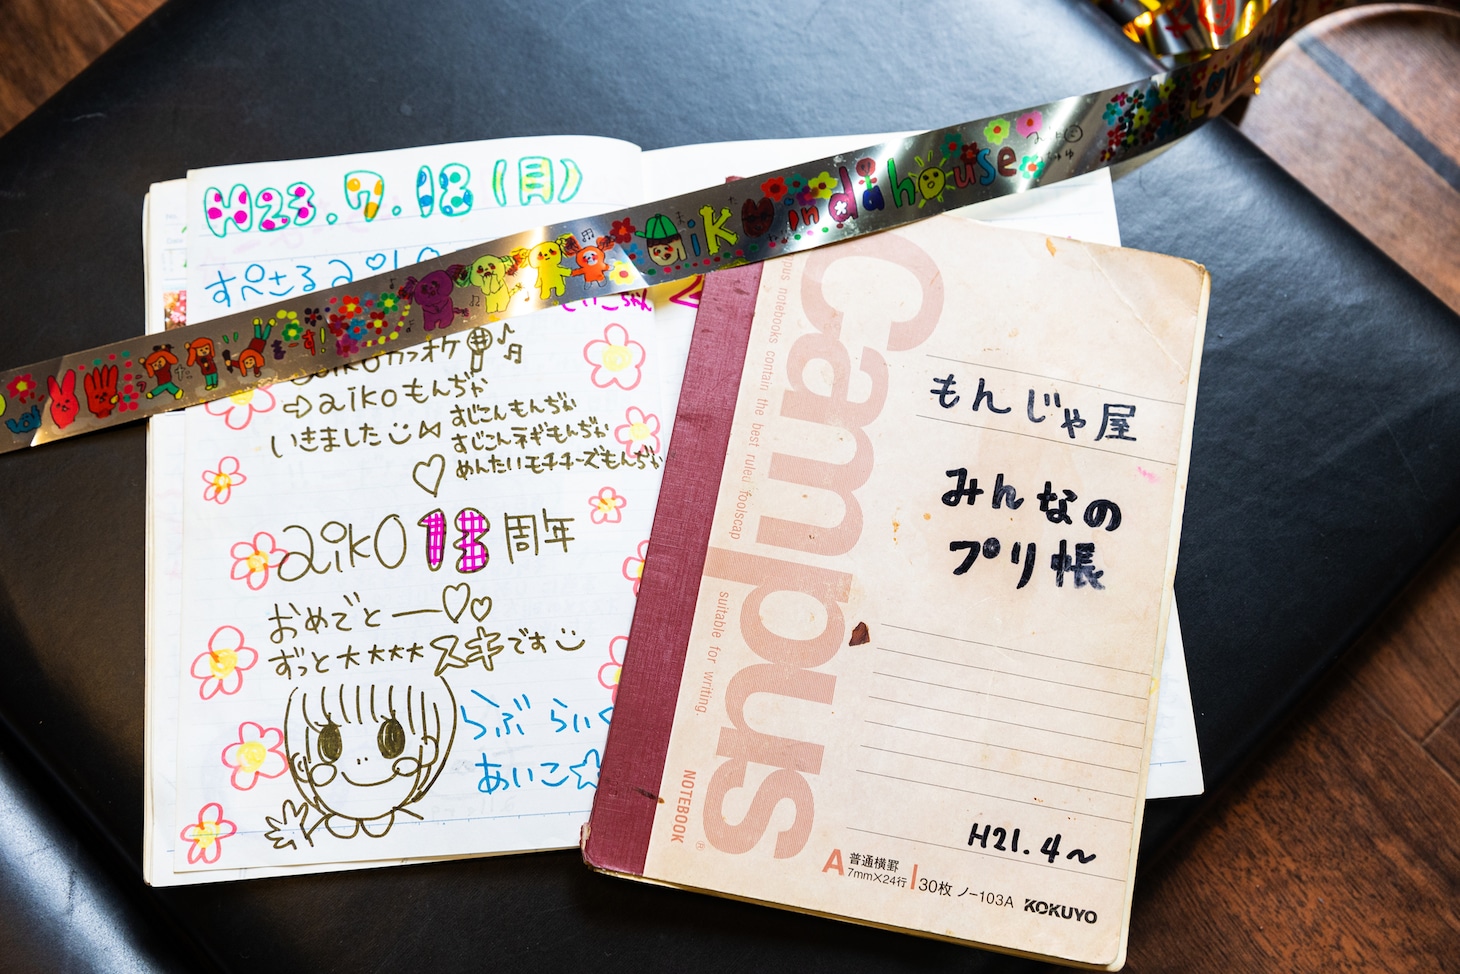 H23.7.18(月)
すぺさるaiko
aikoカラオケ
⇨aikoもんぢゃ
いきました
すじこんもんぢゃ
すじこんネギもんぢゃ
めんたいモチチーズもんぢゃ
aiko 13周年
おめでとー♡♡
ずっと大大大大スキです
らぶ らいく
あいこ☆
まーす!
aiko in da house
LOVE
Campus
Campus notebooks contain the best ruled foolscap suitable for writing.
NOTEBOOK
もんじゃ屋
みんなの
プリ帳
H21.4~
A 普通横罫
7mm×24行
30枚 ノ-103A KOKUYO